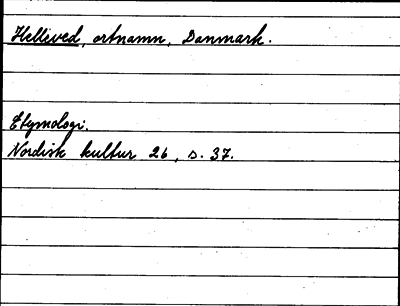 Helleved, ortnamn, Danmark.
Etymologi.
Nordisk kultur 26, s. 37.